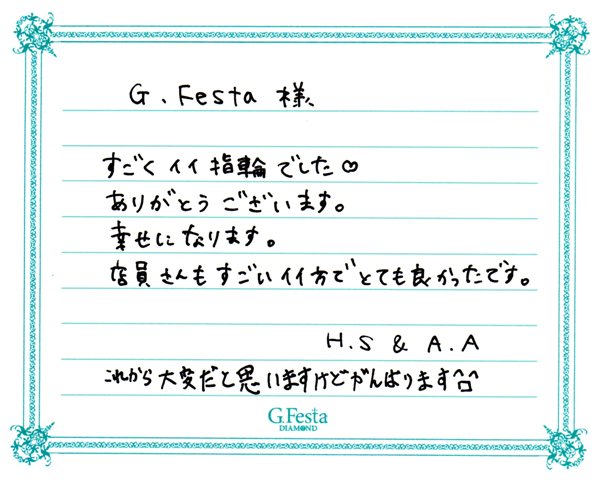 G.Festa 様
すごくイイ指輪でした♡
ありがとうございます。
幸せになります。
店員さんもすごいイイ方でとても良かったです。
H.S & A.A
これから大変だと思いますけどがんばります^□^
G.Festa
DIAMOND